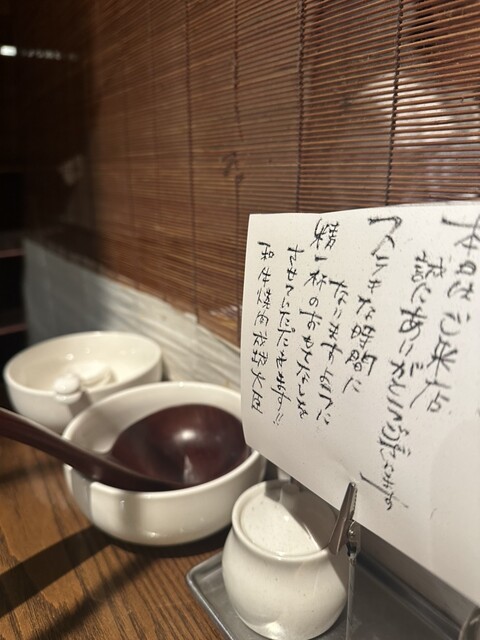 本日はご来店
誠にありがとうございます
ステキな時間に
なりますように
精一杯のおもてなしを
させていただきます!!